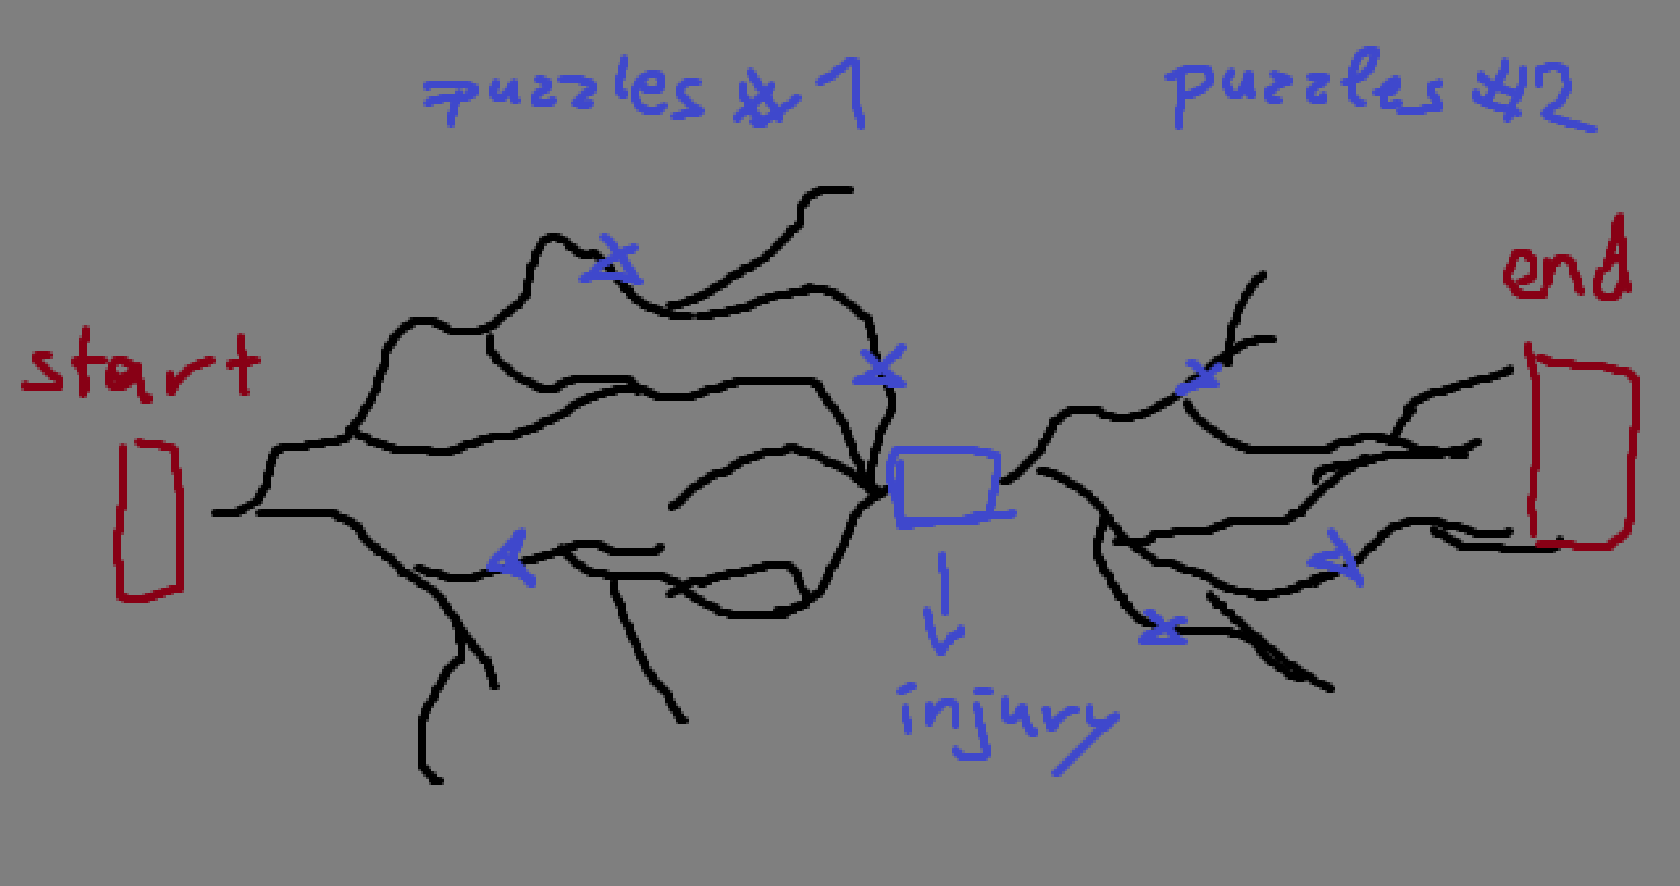 puzzles #1
puzzles #2
end
start
injury